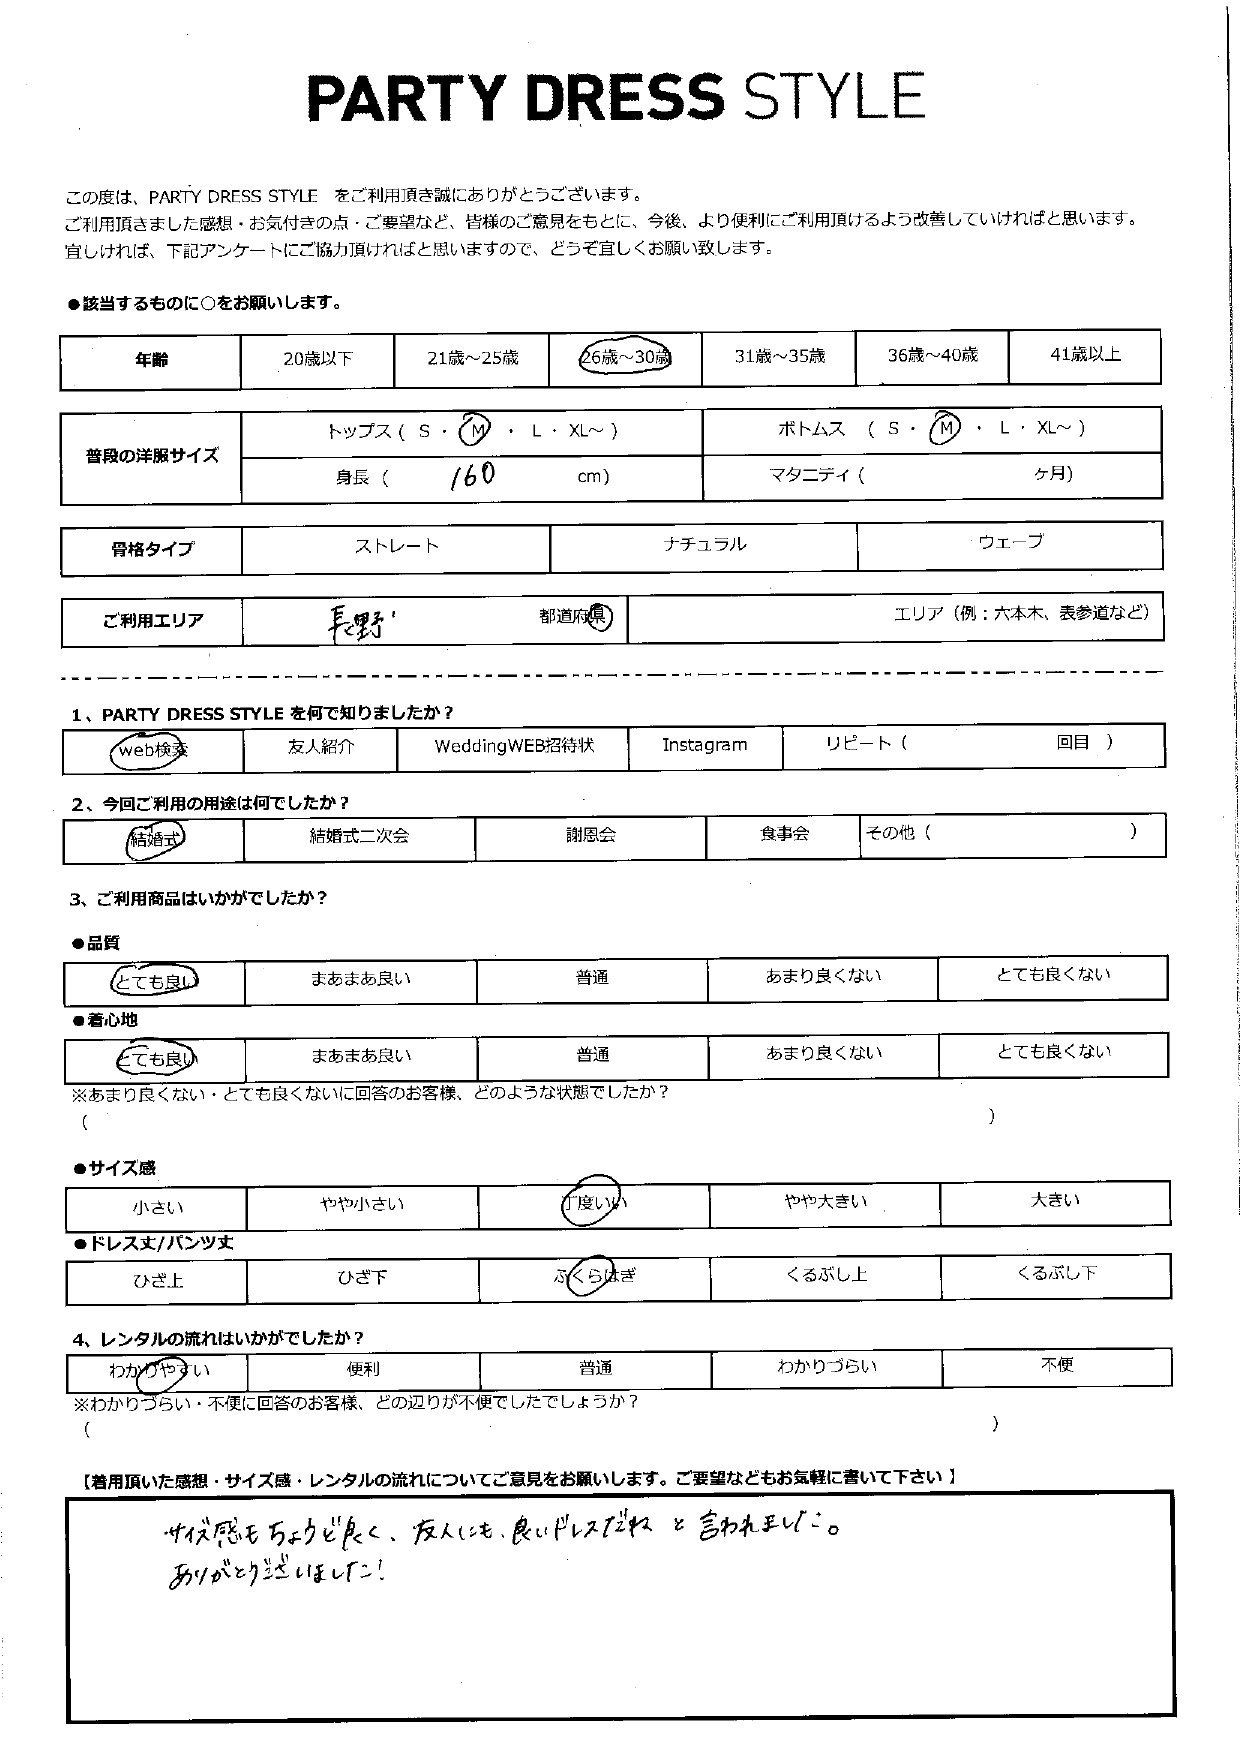 PARTY DRESS STYLE
この度は、PARTY DRESS STYLE をご利用頂き誠にありがとうございます。
ご利用頂きました感想・お気付きの点・ご要望など、皆様のご意見をもとに、今後、より便利にご利用頂けるよう改善していければと思います。
宜しければ、下記アンケートにご協力頂ければと思いますので、どうぞ宜しくお願い致します。
●該当するものに○をお願いします。
年齢 20歳以下 21歳～25歳 26歳～30歳 31歳～35歳 36歳～40歳 41歳以上
普段の洋服サイズ トップス ( S ・ M ・ L ・ XL～ ) ボトムス ( S ・ M ・ L ・ XL～ )
身長 ( 160 cm) マタニティ ( ヶ月)
骨格タイプ ストレート ナチュラル ウェーブ
ご利用エリア 長野 都道府県 エリア（例：六本木、表参道など）
1、PARTY DRESS STYLE を何で知りましたか？
web検索 友人紹介 WeddingWEB招待状 Instagram リピート ( 回目 )
2、今回ご利用の用途は何でしたか？
結婚式 結婚式二次会 謝恩会 食事会 その他 ( )
3、ご利用商品はいかがでしたか？
●品質
とても良い まあまあ良い 普通 あまり良くない とても良くない
●着心地
とても良い まあまあ良い 普通 あまり良くない とても良くない
※あまり良くない・とても良くないに回答のお客様、どのような状態でしたか？
( )
●サイズ感
小さい やや小さい 丁度いい やや大きい 大きい
●ドレス丈/パンツ丈
ひざ上 ひざ下 ふくらはぎ くるぶし上 くるぶし下
4、レンタルの流れはいかがでしたか？
わかりやすい 便利 普通 わかりづらい 不便
※わかりづらい・不便に回答のお客様、どの辺りが不便でしたでしょうか？
( )
【着用頂いた感想・サイズ感・レンタルの流れについてご意見をお願いします。ご要望などもお気軽に書いて下さい 】
サイズ感もちょうど良く、友人にも、良いドレスだね と 言われました。
ありがとうございました!